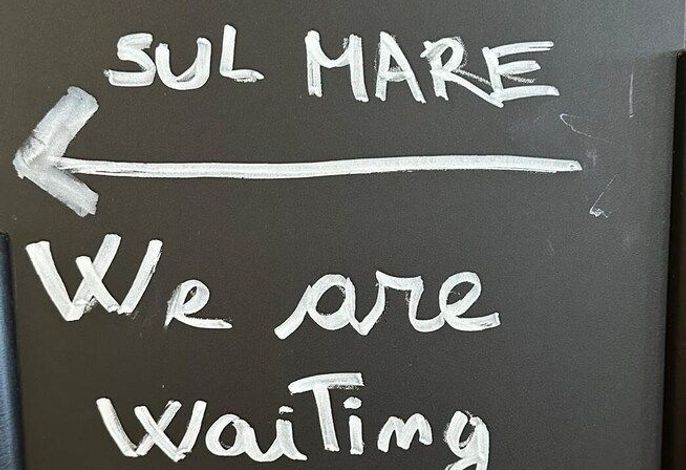 SUL MARE
We are
waiTing